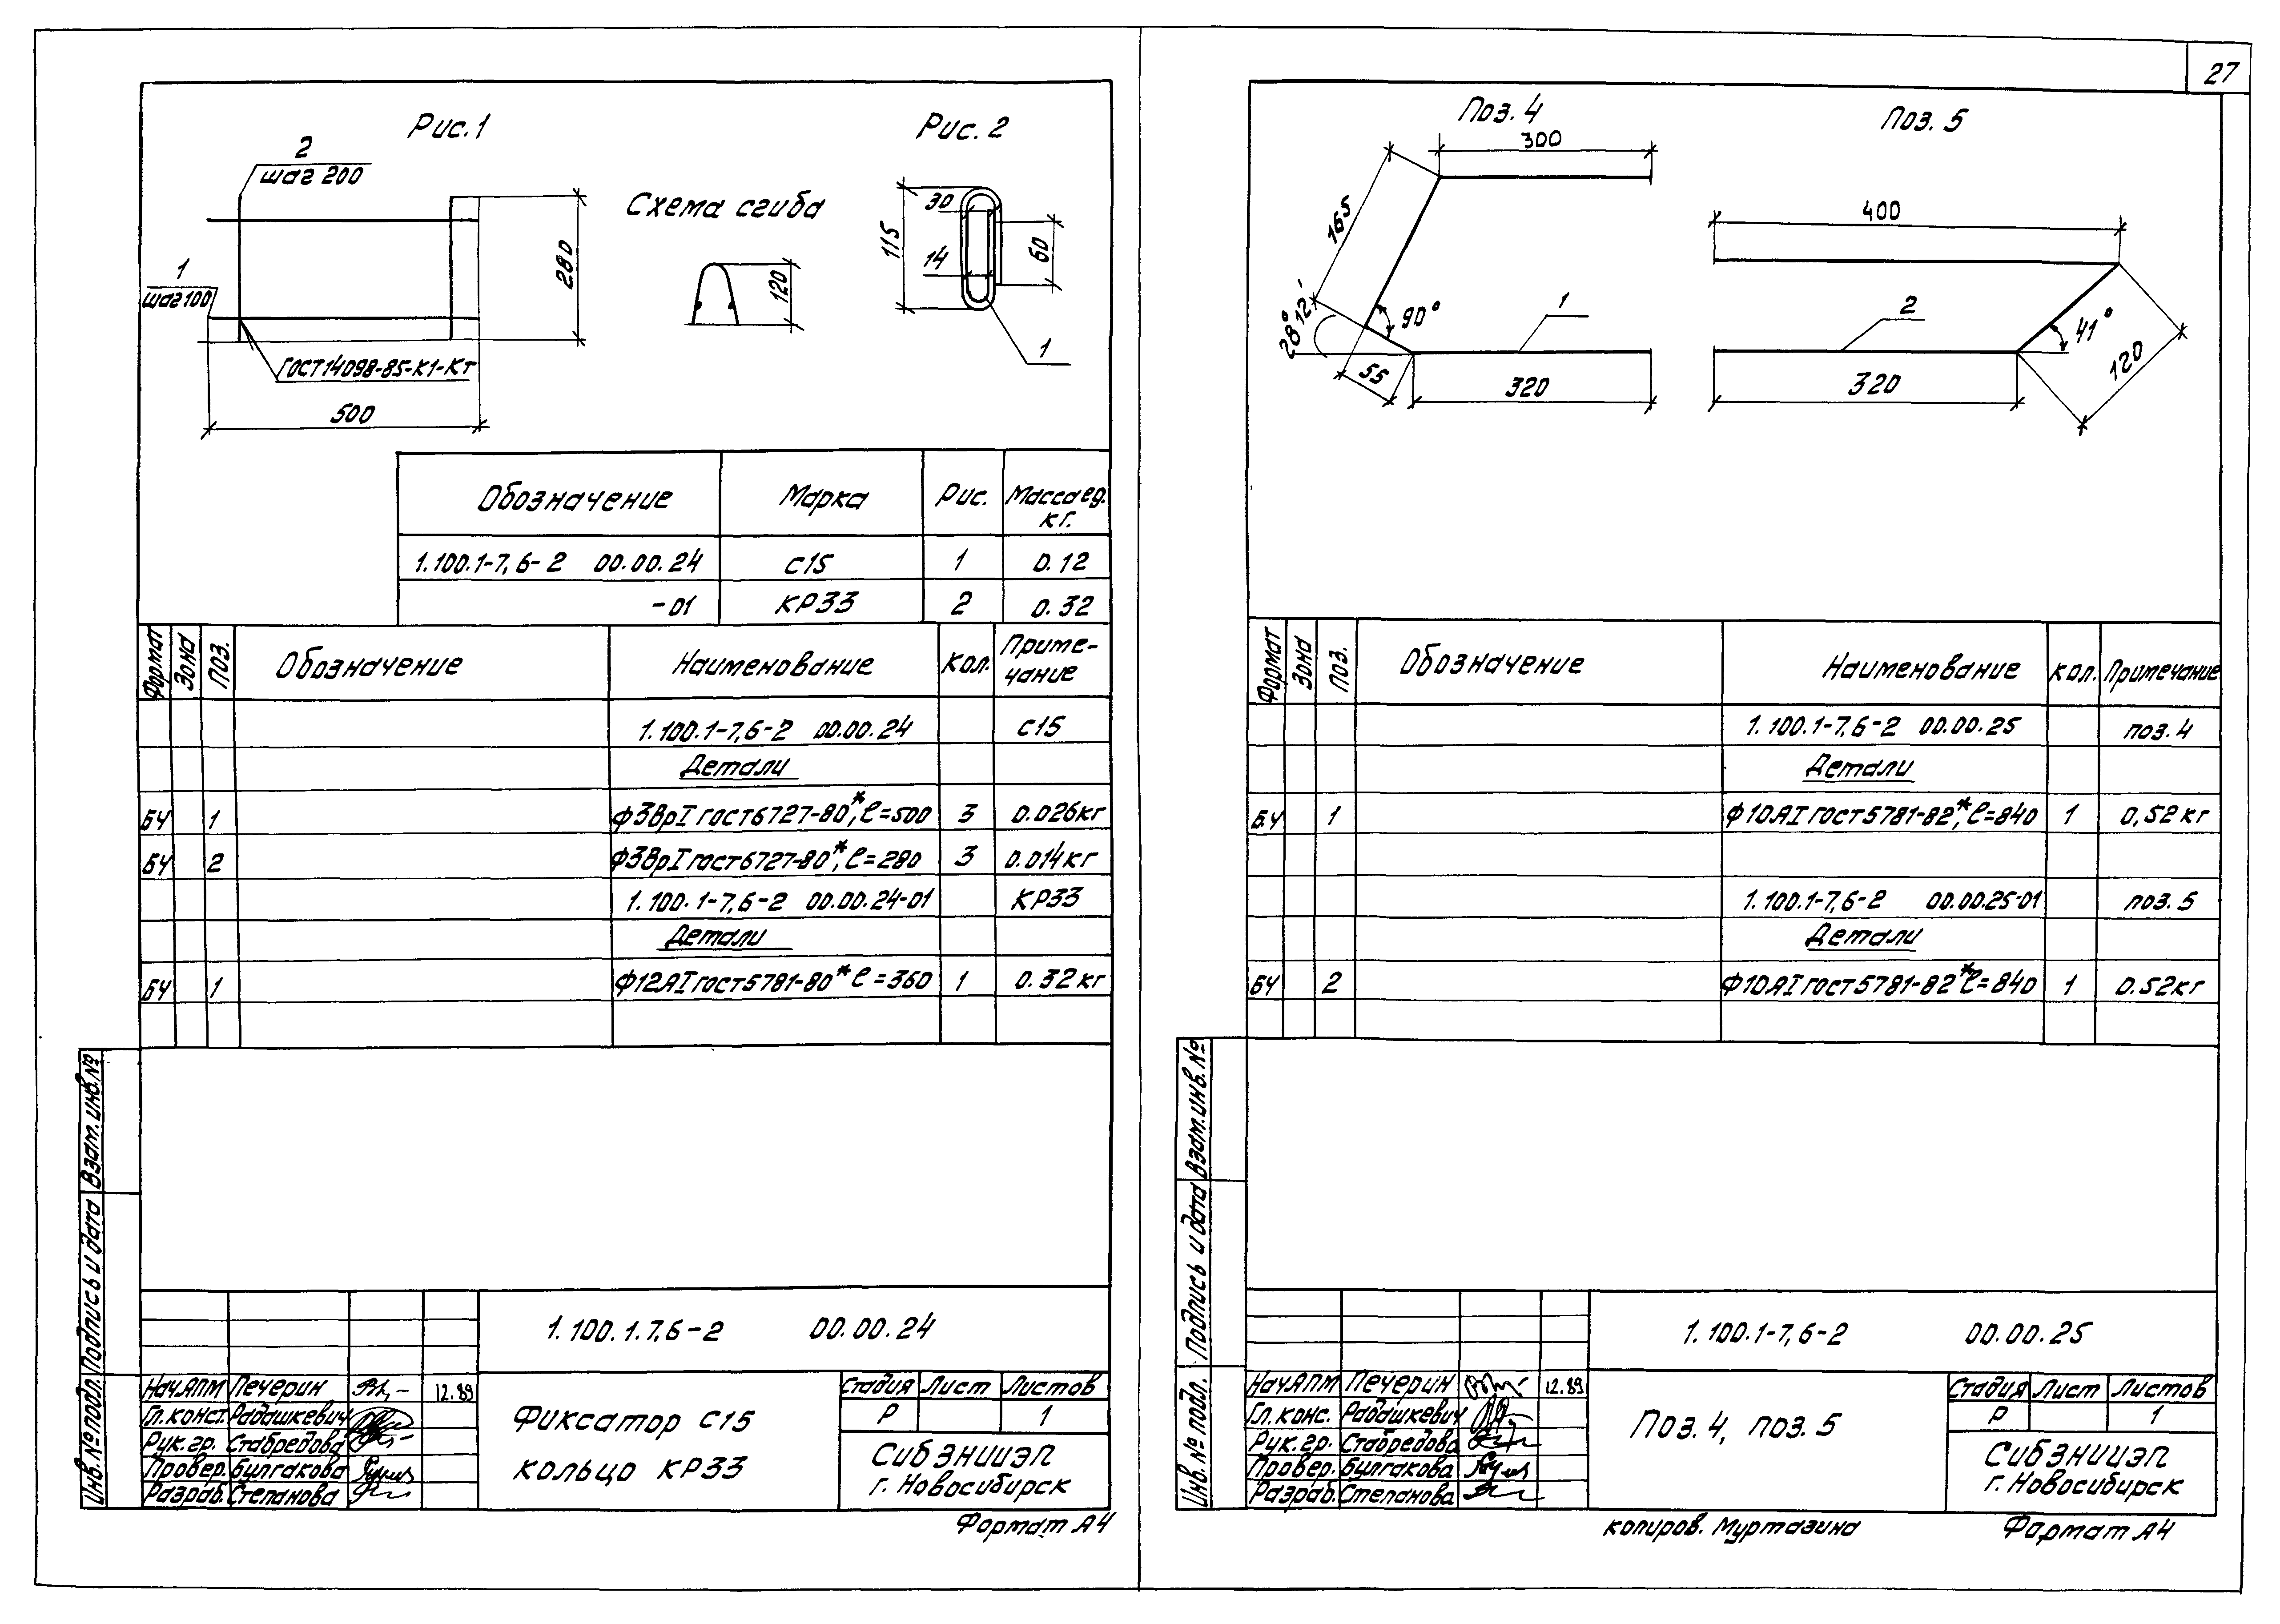 27
Рис. 1
Рис. 2
2
шаг 200
Схема сгиба
1
шаг 100
280
120
ГОСТ 14098-85-К1-Кт
500
30
115
14
60
1
Обозначение Марка Рис. Масса ед. кг.
1.100.1-7,6-2 00.00.24 С15 1 0.12
-01 КР33 2 0.32
Формат Зона Поз. Обозначение Наименование Кол. Приме-
чание
1.100.1-7,6-2 00.00.24 С15
Детали
БЧ 1 ф3ВрI ГОСТ 6727-80*, ℓ=500 3 0.026кг
БЧ 2 ф3ВрI ГОСТ 6727-80*, ℓ=280 3 0.014кг
1.100.1-7,6-2 00.00.24-01 КР33
Детали
БЧ 1 ф12АI ГОСТ 5781-80* ℓ=360 1 0.32кг
Взам. инв. №
Подпись и дата
Инв. № подл.
1.100.1.7,6-2 00.00.24
Нач АПМ Печерин 12.89
Гл. конст. Рабашкевич
Рук. гр. Стабредова
Провер. Булгакова
Разраб. Степанова
Фиксатор С15
кольцо КР33
Стадия Лист Листов
Р 1
СибЗНИИЭП
г. Новосибирск
Формат А4
Поз. 4
Поз. 5
300
165
90°
28°12'
55
320
1
400
2
41°
120
320
Формат Зона Поз. Обозначение Наименование Кол. Примечание
1.100.1-7,6-2 00.00.25 поз. 4
Детали
БЧ 1 ф10АI ГОСТ 5781-82*, ℓ=840 1 0,52кг
1.100.1-7,6-2 00.00.25-01 поз. 5
Детали
БЧ 2 ф10АI ГОСТ 5781-82* ℓ=840 1 0.52кг
Взам. инв. №
Подпись и дата
Инв. № подл.
1.100.1-7,6-2 00.00.25
Нач АПМ Печерин 12.89
Гл. конс. Рабашкевич
Рук. гр. Стабредова
Провер. Булгакова
Разраб. Степанова
Поз. 4, поз. 5
Стадия Лист Листов
Р 1
СибЗНИИЭП
г. Новосибирск
копиров. Муртазина
Формат А4